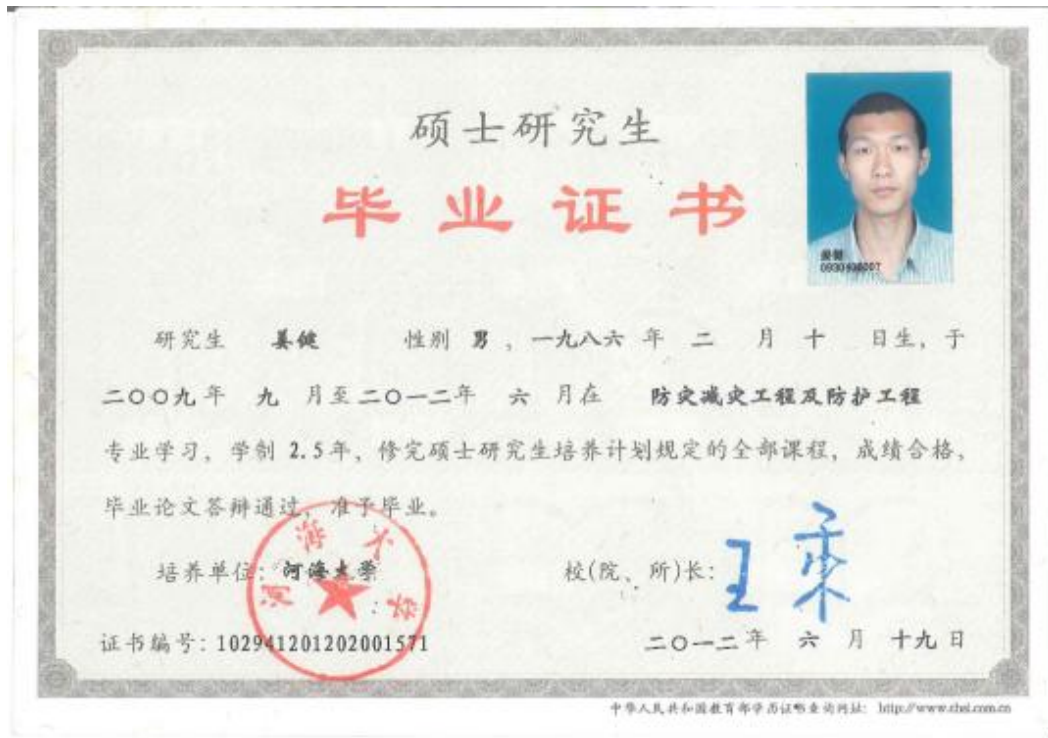 硕士研究生
毕业证书
姜健
0930408007
研究生 姜健 性别 男 ，一九八六 年 二 月 十 日生，于
二〇〇九年 九 月至二〇一二年 六 月在 防灾减灾工程及防护工程
专业学习，学制 2.5年，修完硕士研究生培养计划规定的全部课程，成绩合格，
毕业论文答辩通过，准予毕业。
河海大学
培养单位：河海大学 校(院、所)长：王乘
证书编号：102941201202001571 二〇一二年 六 月 十九日
中华人民共和国教育部学历证书查询网址： http://www.chsi.com.cn